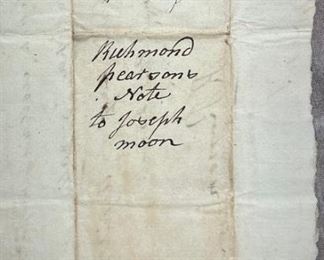 Richmond
pearsons
Note
to Joseph
moon